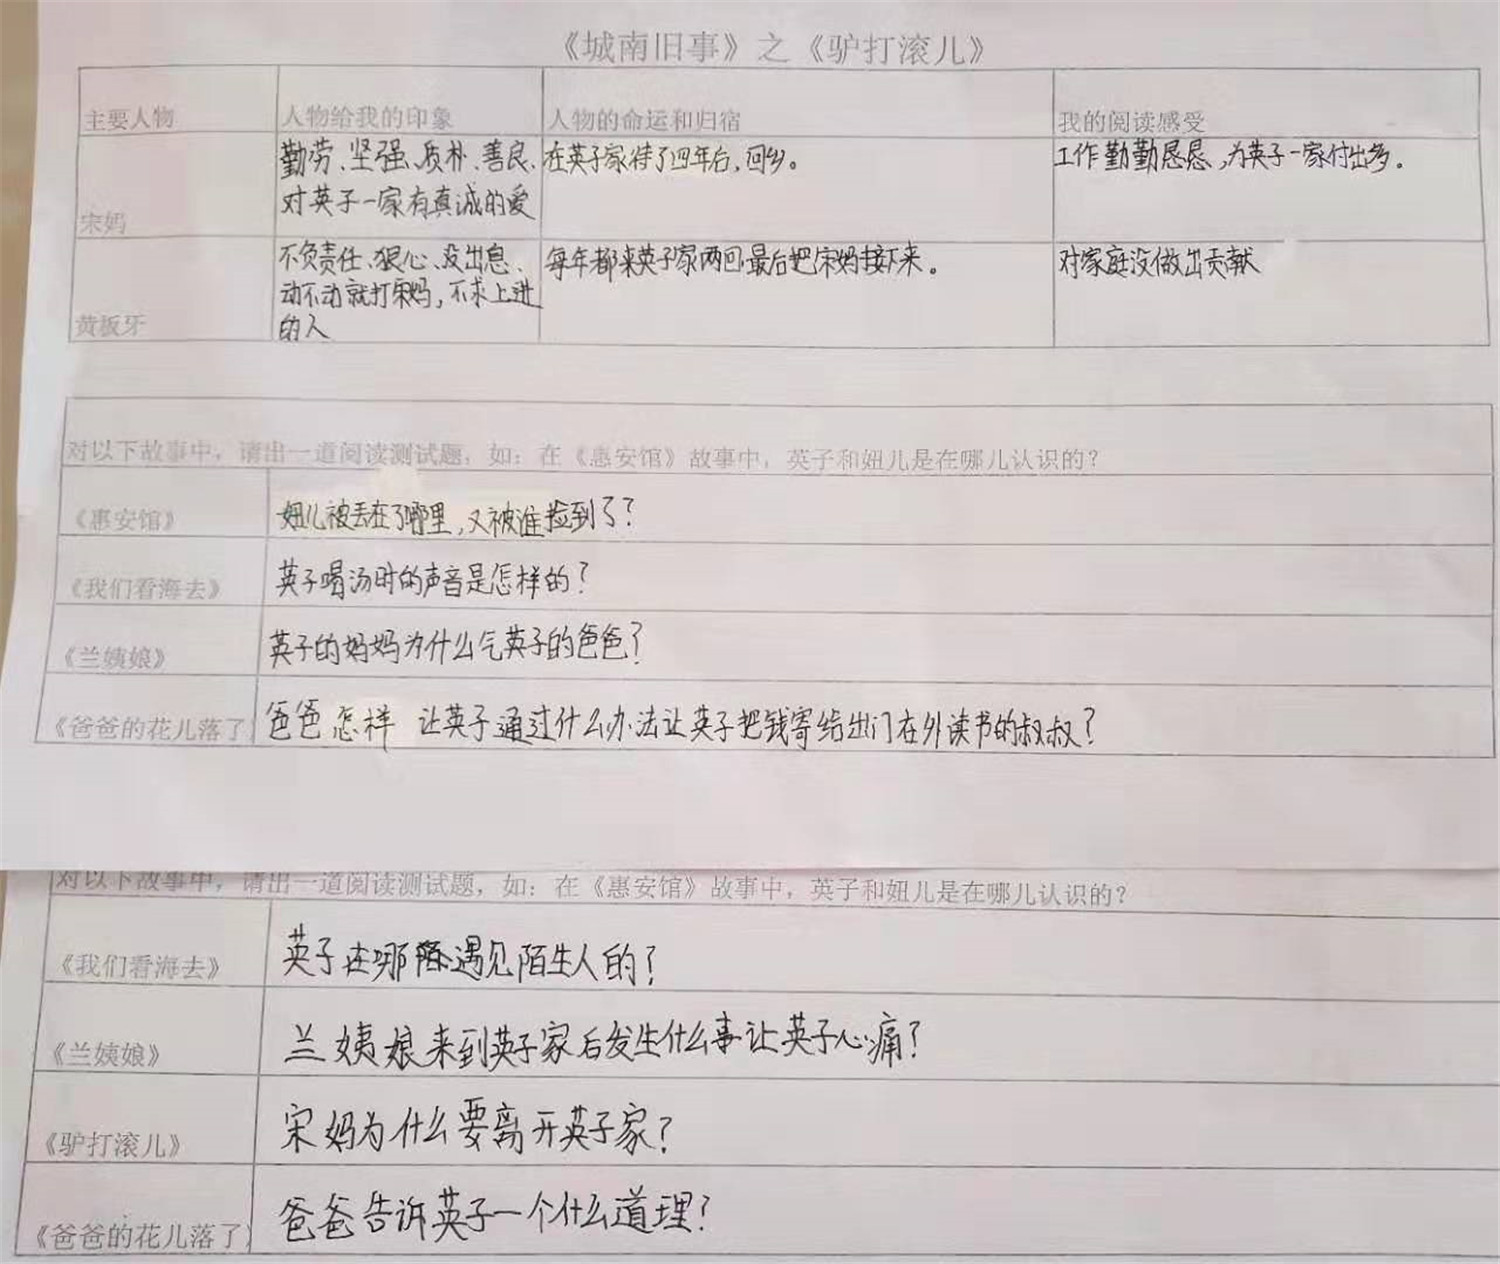 《城南旧事》之《驴打滚儿》
主要人物 人物给我的印象 人物的命运和归宿 我的阅读感受
勤劳、坚强、质朴、善良、 在英子家待了四年后,回乡。 工作勤勤恳恳,为英子一家付出多。
对英子一家有真诚的爱
宋妈
不负责任、狠心、没出息、 每年都来英子家两回,最后把宋妈接下来。 对家庭没做出贡献
动不动就打宋妈,不求上进
的人
黄板牙
对以下故事中,请出一道阅读测试题,如:在《惠安馆》故事中,英子和妞儿是在哪儿认识的?
《惠安馆》 妞儿被丢在了哪里,又被谁捡到了?
《我们看海去》 英子喝汤时的声音是怎样的?
《兰姨娘》 英子的妈妈为什么气英子的爸爸?
《爸爸的花儿落了》 爸爸怎样 让英子通过什么办法让英子把钱寄给出门在外读书的叔叔?
对以下故事中,请出一道阅读测试题,如:在《惠安馆》故事中,英子和妞儿是在哪儿认识的?
《我们看海去》 英子在哪 遇见陌生人的?
《兰姨娘》 兰姨娘来到英子家后发生什么事让英子心痛?
《驴打滚儿》 宋妈为什么要离开英子家?
《爸爸的花儿落了》 爸爸告诉英子一个什么道理?